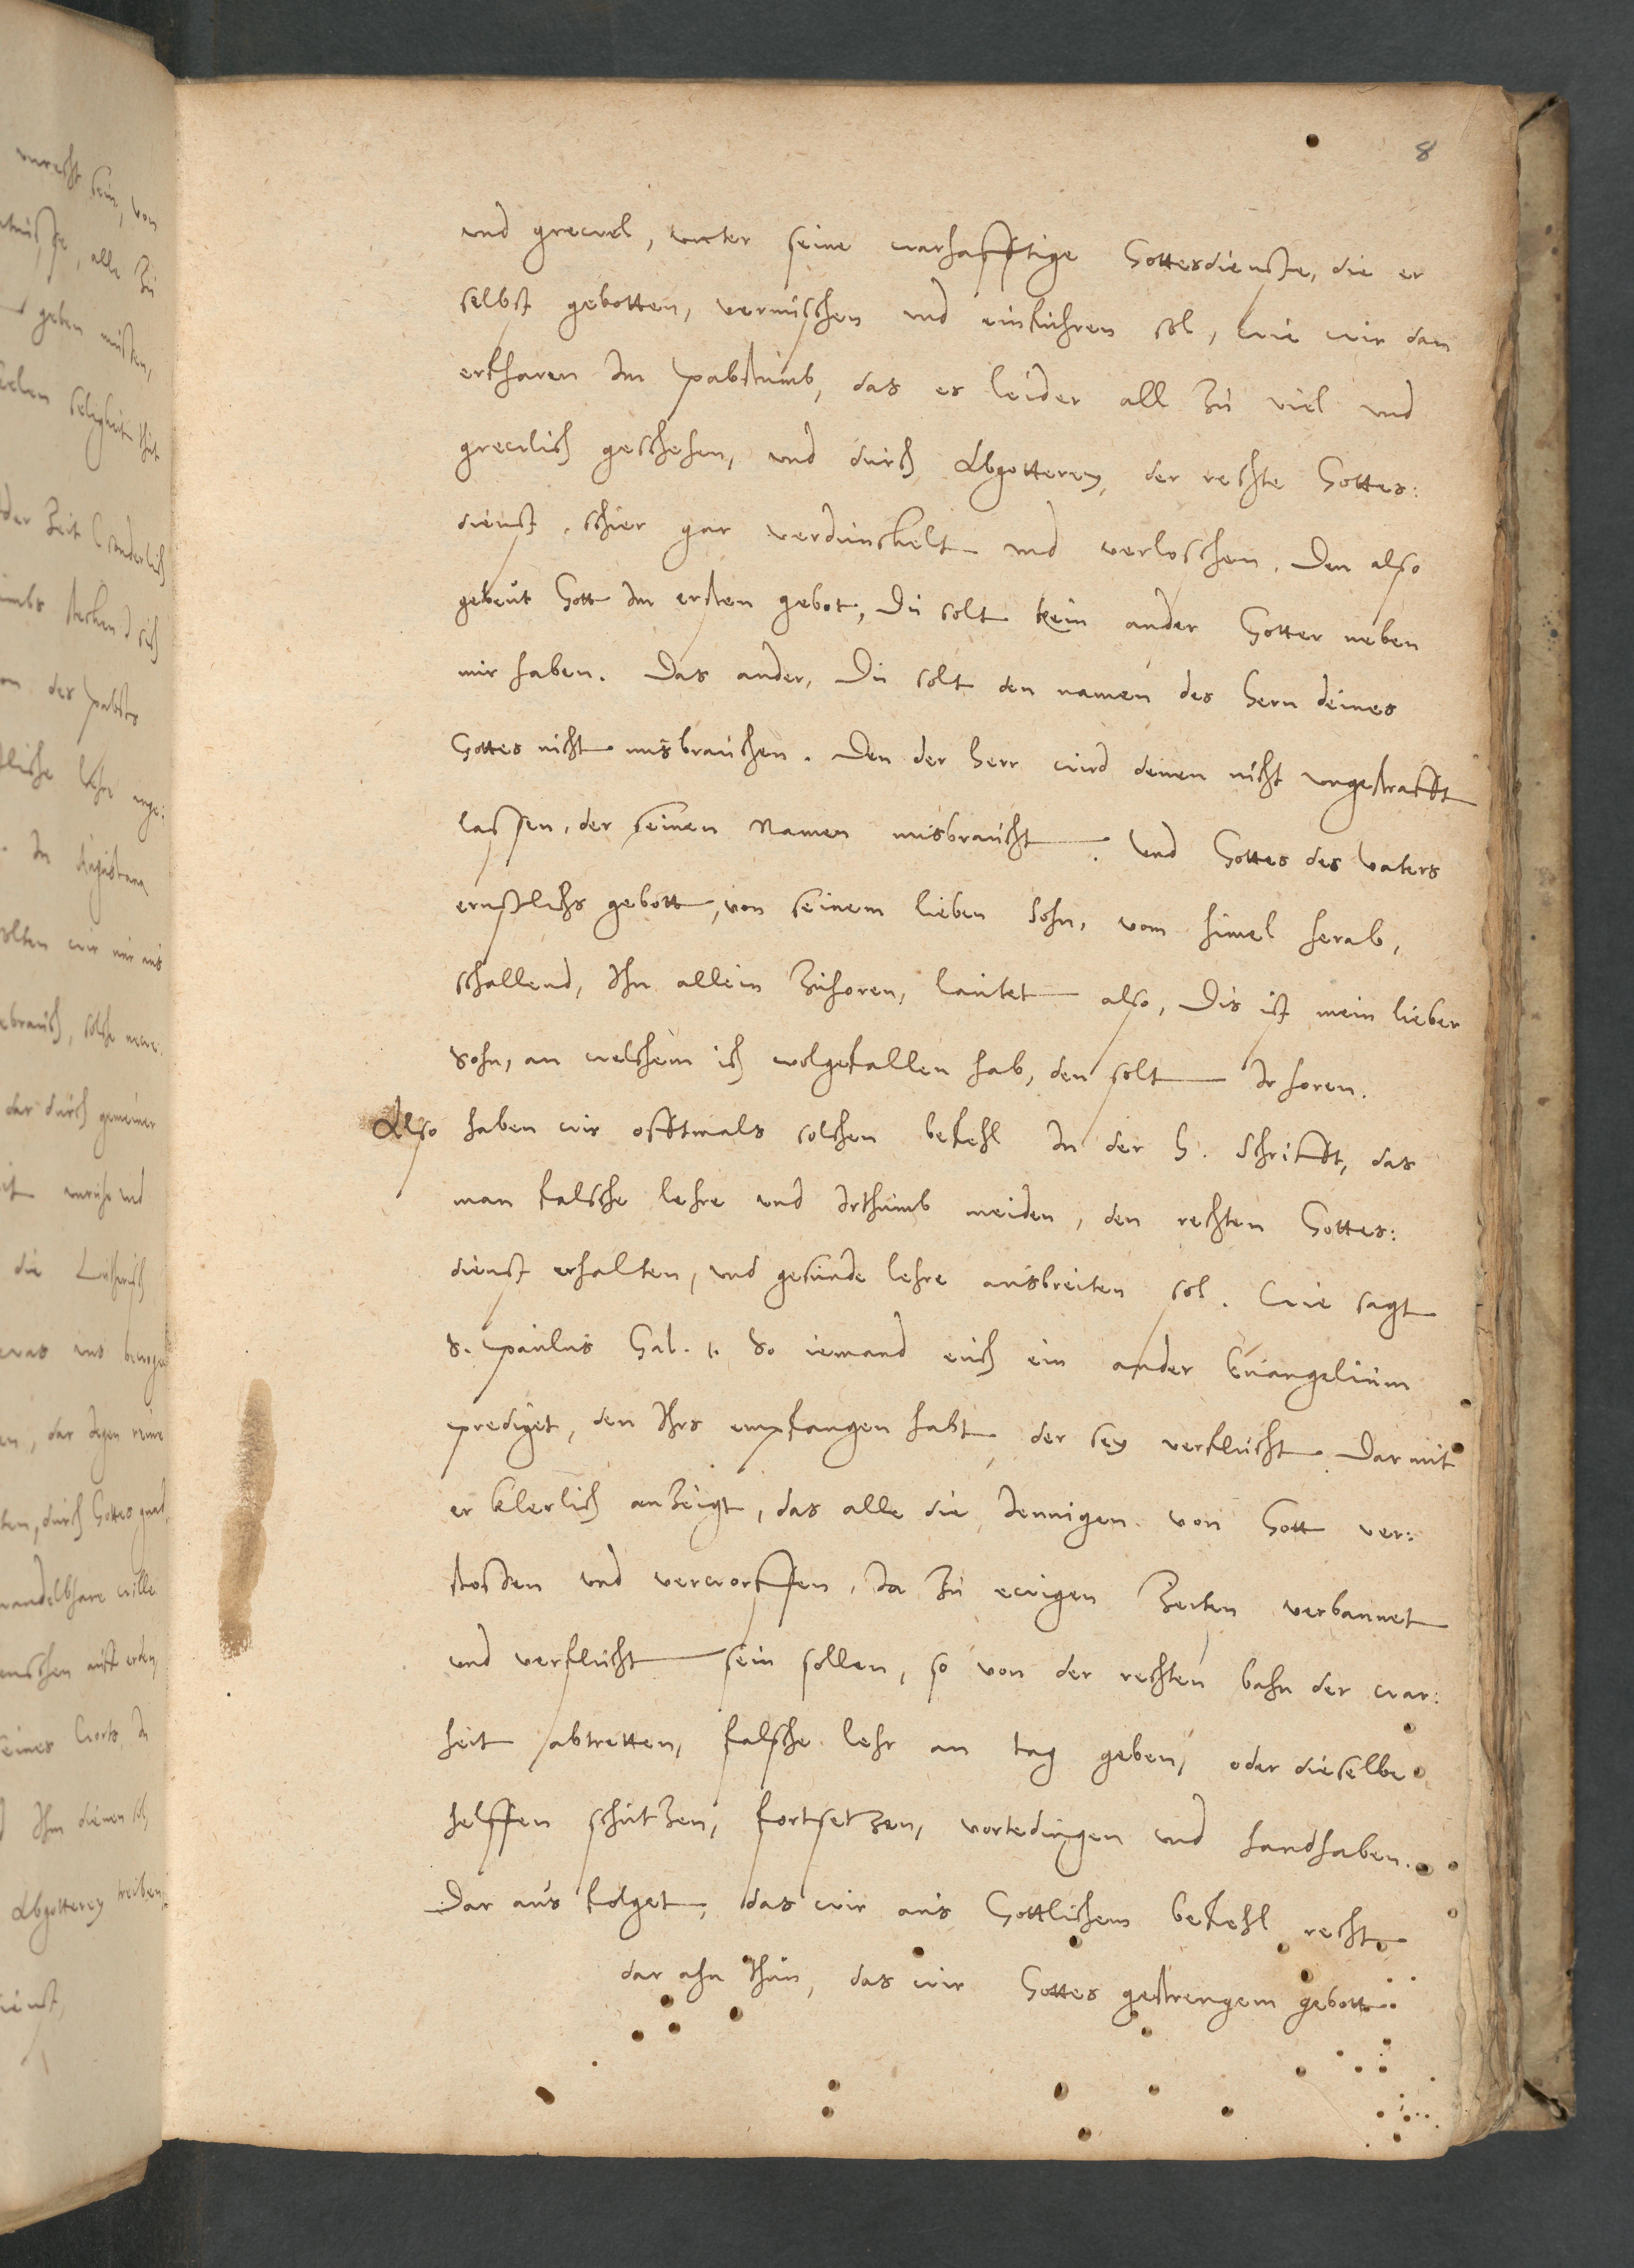 8
und grewel, unter seine warhafftige Gottesdienste, die er
selbst gebotten, vermischen und einfuhren sol, wie wir dan
erfharen Im pabstumb, das es leider all zu viel und
grewlich geschehen, und durch Abgotterey, der rechte Gottes:
dienst, schier gar verdunckelt und verloschen. Den also
gebeut Gott Im ersten gebot, Du solt kein ander Gotter neben
mir haben. Das ander, Du solt den namen des Hern deines
Gottes nicht misbrauchen. Den der Herr wird denen nicht ungestrafft
lassen, der seinen Namen misbraucht. Und Gottes des Vaters
ernstlichs gebott, von seinem lieben Sohn, vom himel herab,
schallend, Ihn allein zuhoren, lautet also, Dis ist mein lieber
Sohn, an welchem ich wolgefallen hab, den solt Ir horen.
Also haben wir offtmals solchen befehl In der H. Schrifft, das
man falsche lehre und Irthumb meiden, den rechten Gottes:
dienst erhalten, und gesunde lehre ausbreiten sol. Wie sagt
S. Paulus Gal. 1. So iemand euch ein ander Euangelium
prediget, den Ihrs empfangen habt, der sey verflucht. Darmit
er klerlich anzeigt, das alle die Jennigen von Gott ver:
stossen und verworffen, Ia zu ewigen Zeiten verbannet
und verflucht sein sollen, so von der rechten bahn der war:
heit abtretten, falsche lehr an tag geben, oder dieselbe
helffen schutzen, fortsetzen, vortedingen und handhaben.
Dar aus folget, das wir aus Gottlichem befehl recht
dar ahn thun, das wir Gottes gestrengem gebott